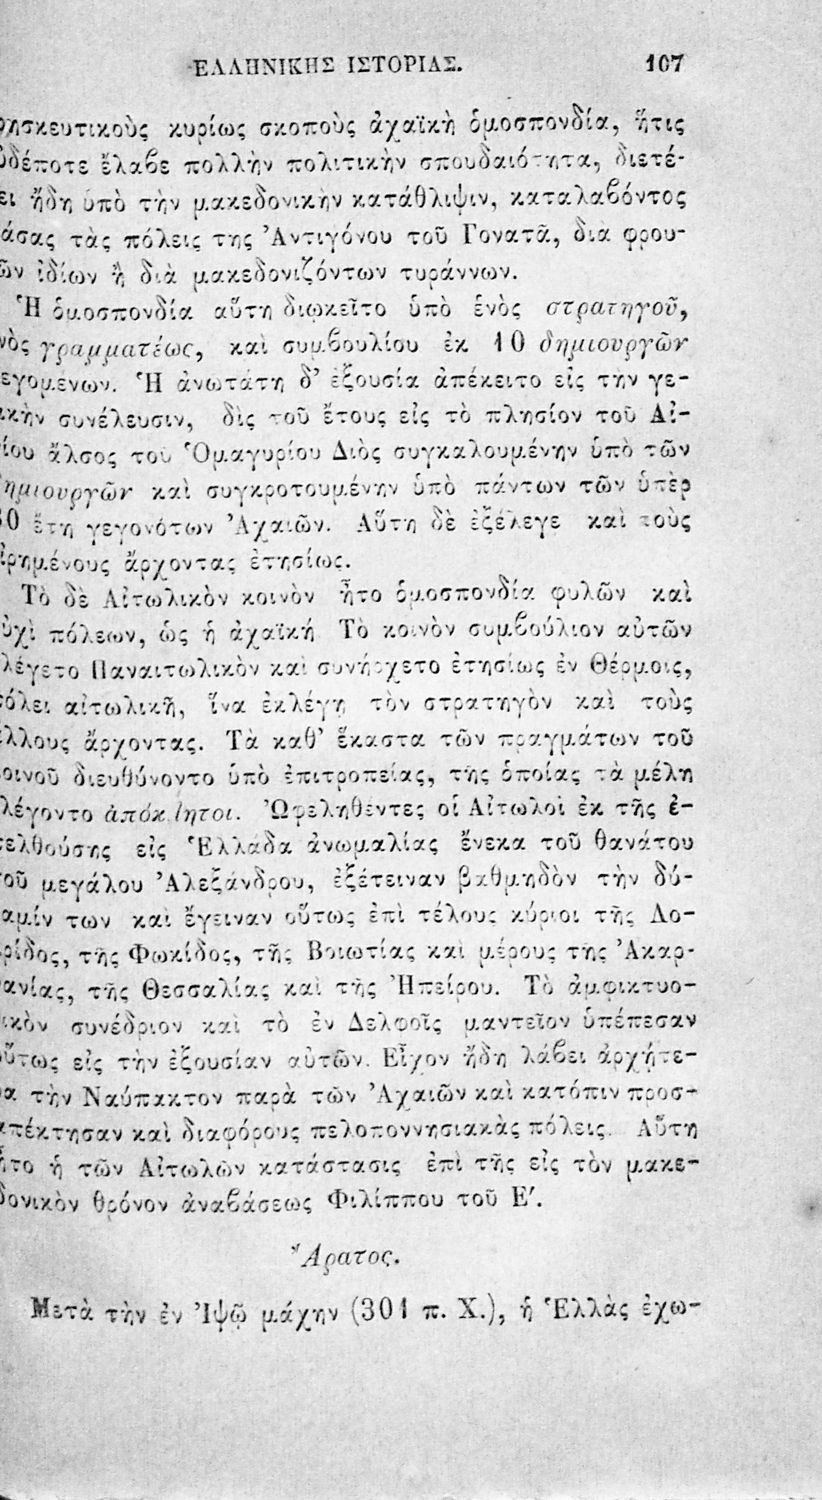 ΕΛΛΗΝΙΚΗΣ ΙΣΤΟΡΙΑΣ. 107
ησκευτικοὺς κυρίως σκοποὺς ἀχαϊκὴ ὁμοσπονδία, ἥτις
δέποτε ἔλαβε πολλὴν πολιτικὴν σπουδαιότητα, διετέ-
ει ἤδη ὑπὸ τὴν μακεδονικὴν κατάθλιψιν, καταλαβόντος
άσας τὰς πόλεις της Ἀντιγόνου τοῦ Γονατᾶ, διὰ φρου-
ῶν ἰδίων ἢ διὰ μακεδονιζόντων τυράννων.
Ἡ ὁμοσπονδία αὕτη διῳκεῖτο ὑπὸ ἑνὸς στρατηγοῦ,
νὸς γραμματέως, καὶ συμβουλίου ἐκ 10 δημιουργῶν
εγομενων. Ἡ ἀνωτάτη δ' ἐξουσία ἀπέκειτο εἰς τὴν γε-
ικὴν συνέλευσιν, δὶς τοῦ ἔτους εἰς τὸ πλησίον τοῦ Αἰ-
ίου ἄλσος τοῦ Ὁμαγυρίου Διὸς συγκαλουμένην ὑπὸ τῶν
ημιουργῶν καὶ συγκροτουμένην ὑπὸ πάντων τῶν ὑπὲρ
30 ἔτη γεγονότων Ἀχαιῶν. Αὕτη δὲ ἐξέλεγε καὶ τοὺς
ἰρημένους ἄρχοντας ἐτησίως.
Τὸ δὲ Αἰτωλικὸν κοινὸν ἦτο ὁμοσπονδία φυλῶν καὶ
ὐχὶ πόλεων, ὡς ἡ ἀχαϊκή Τὸ κοινὸν συμβούλιον αὐτῶν
λέγετο Παναιτωλικὸν καὶ συνήρχετο ἐτησίως ἐν Θέρμοις,
όλει αἰτωλικῇ, ἵνα ἐκλέγῃ τὸν στρατηγὸν καὶ τοὺς
λλους ἄρχοντας. Τὰ καθ' ἕκαστα τῶν πραγμάτων τοῦ
οινοῦ διευθύνοντο ὑπὸ ἐπιτροπείας, τῆς ὁποίας τὰ μέλη
λέγοντο ἀπόκλητοι. Ὠφεληθέντες οἱ Αἰτωλοὶ ἐκ τῆς ἐ-
ελθούσης εἰς Ἑλλάδα ἀνωμαλίας ἕνεκα τοῦ θανάτου
οῦ μεγάλου Ἀλεξάνδρου, ἐξέτειναν βαθμηδὸν τὴν δύ-
αμίν των καὶ ἔγειναν οὕτως ἐπὶ τέλους κύριοι τῆς Λο-
ρίδος, τῆς Φωκίδος, τῆς Βοιωτίας καὶ μέρους τῆς Ἀκαρ-
ανίας, τῆς Θεσσαλίας καὶ τῆς Ἠπείρου. Τὸ ἀμφικτυο-
ικὸν συνέδριον καὶ τὸ ἐν Δελφοῖς μαντεῖον ὑπέπεσαν
ὕτως εἰς τὴν ἐξουσίαν αὐτῶν. Εἶχον ἤδη λάβει ἀρχήτε-
α τὴν Ναύπακτον παρὰ τῶν Ἀχαιῶν καὶ κατόπιν προσ-
πέκτησαν καὶ διαφόρους πελοποννησιακὰς πόλεις. Αὕτη
ἦτο ἡ τῶν Αἰτωλῶν κατάστασις ἐπὶ τῆς εἰς τὸν μακε-
δονικὸν θρόνον ἀναβάσεως Φιλίππου τοῦ Ε'.
Ἄρατος.
Μετὰ τὴν ἐν Ἰψῷ μάχην (301 π. Χ.), ἡ Ἑλλὰς ἐχω-